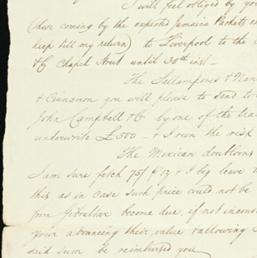 I will feel obliged by you
these coming by the express Jamaica Packets a
keep till my return) to Liverpool to the
& Co Chapel Street until 30th inst -
The Sallampores &
& Cinnamon you will please to send to
John Campbell & Co by one of the tra
underwrite £500 - & I run the risk
The Mexican doubloons
I am sure fetch 75/ & I beg leave
this as in case such price could not be
from Gibraltar become due, if not inconv
your advancing their value & allowing
said sum be reimbursed you